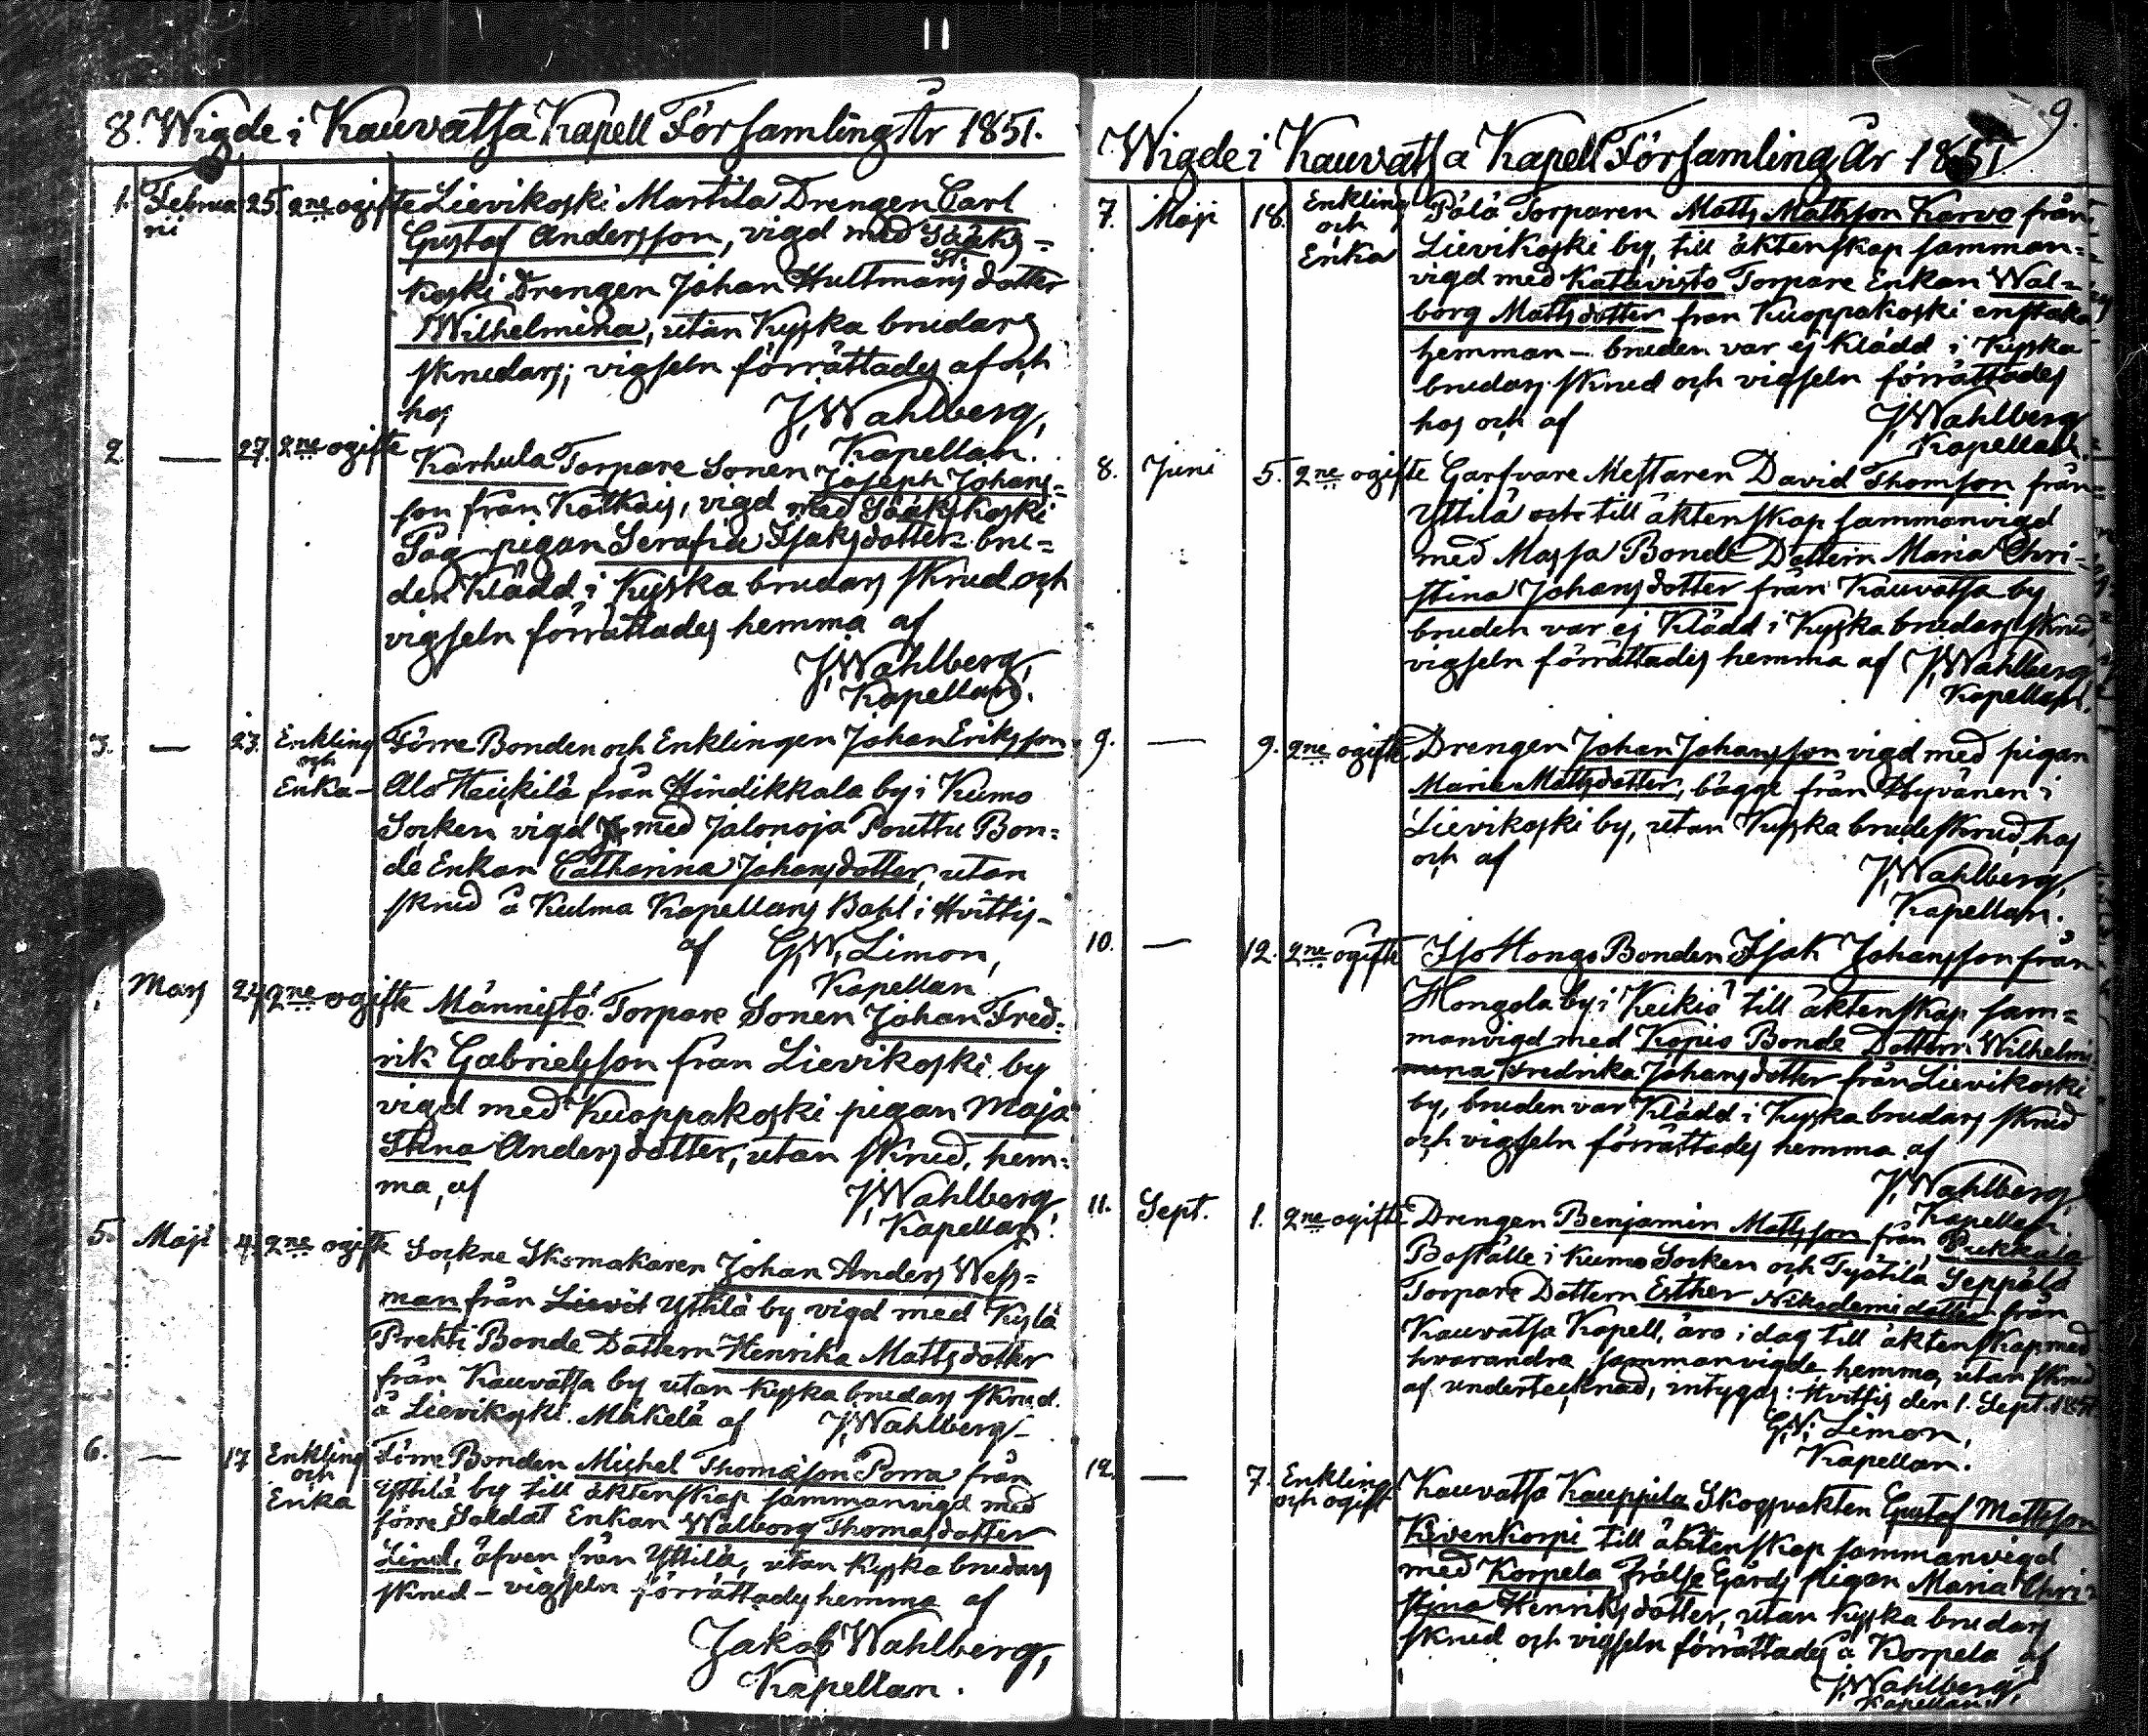 8. Wigde i Kauvatsa Kapell Församling År 1851.
1. Februarii 25. 2ne ogifte Lievikoski Martila Drengen Carl
Gustaf Andersson, vigd med Sääks-
koski Drengen Johan Hultmans dotter
Wilhelmina, utan Kyska brudars
skrudars; vigseln förrättades af och
hos J. Wahlberg,
Kapellan.
2. — 27. 2ne ogifte Karhula Torpare Sonen Joseph Johans-
son från Kätkäis, vigd med Sääkskoski
pigan Serafia Isaksdotter bru-
den Klädd i Kyska brudars skrud och
vigseln förrättades hemma af
J. Wahlberg,
Kapellan.
3. — 23. Enkling och Enka – Förre Bonden och Enklingen Johan Eriksson
Alo Heikilä från Hindikkala by i Kumo
Socken vigd med Jalonoja Pouttu Bon-
de Enkan Catharina Johansdotter, utan
skrud å Kulma Kapellans Bohl i Hvittis –
af G. W. Limon,
Kapellan
Mars 24 2ne ogifte Männistö Torpare Sonen Johan Fred-
rik Gabrielsson från Lievikoski by
vigd med Kuoppakoski pigan Maja
Stina Andersdotter, utan skrud, hem-
ma, af J. Wahlberg
Kapellan.
5. Maji 4. 2ne ogifte Sockne Skomakaren Johan Anders Wess-
man från Lievit Yttilä by vigd med Kylä
Prekti Bonde Dottern Henrika Mattsdotter
från Kauvatsa by utan kyska brudars skrud.
å Lievikoski Mäkelä af J. Wahlberg –
6. — 17 Enkling och Enka Förre Bonden Michel Thomasson Porra från
Yttilä by till äktenskap sammanvigd med
förre Soldat Enkan Walborg Thomasdotter
Lind, äfven från Yttilä, utan Kyska brudars
skrud – vigseln förrättades hemma af
Jakob Wahlberg,
Kapellan.
9.
Wigde i Kauvatsa Kapell Församling År 1851
7. Maji 18. Enkling och Enka Pälä Torparen Matts Mattsson Karvo från
Lievikoski by, till äktenskap samman-
vigd med Katavisto Torpare Enkan Wal-
borg Mattsdotter från Kuoppakoski enstaka
hemman – bruden var ej Klädd i Kyska
brudars skrud och vigseln förrättades
hos och af J. Wahlberg
Kapellan.
8. Juni 5. 2ne ogifte Garfvare Mestaren David Thomson från
Yttilä och till äktenskap sammanvigd
med Massa Bonde Dottern Maria Chri-
stina Johansdotter från Kauvatsa by
bruden var ej Klädd i Kyska brudars skrud,
vigseln förrättades hemma af J. Wahlberg,
Kapellan.
9. — 9. 2ne ogifte Drengen Johan Johansson vigd med pigan
Maria Mattsdotter, bägge från Hyvänen i
Lievikoski by, utan Kyska brudeskrud, hos
och af J. Wahlberg,
Kapellan.
10. — 12. 2ne ogifte Iso Hongo Bonden Isak Johansson från
Hongola by i Keikiö till äktenskap sam-
manvigd med Kopio Bonde Dottern Wilhelmi
na Fredrika Johansdotter från Lievikoski
by, bruden var Klädd i Kyska brudars skrud
och vigseln förrättades hemma af
J. Wahlberg,
Kapellan
11. Sept. 1. 2ne ogifte Drengen Benjamin Mattsson från Pukkala
Boställe i Kumo Socken och Työtilä Seppälä
Torpare Dottern Esther Nikodemidotter från
Kauvatsa Kapell, äro i dag till äktenskap med
hvarandra sammanvigde, hemma, utan skrud
af undertecknad, intygas: Hvittis den 1. Sept. 1851
G. W. Limon,
Kapellan.
12. — 7. Enkling och ogift Kauvatsa Kauppila Skogsvakten Gustaf Mattsson
Kivenkorpi till äktenskap sammanvigd
med Korpela Frälse Gårds pigan Maria Chri-
stina Henriksdotter, utan kyska brudars
skrud och vigseln förrättades å Korpela af
J. Wahlberg,
Kapellan.